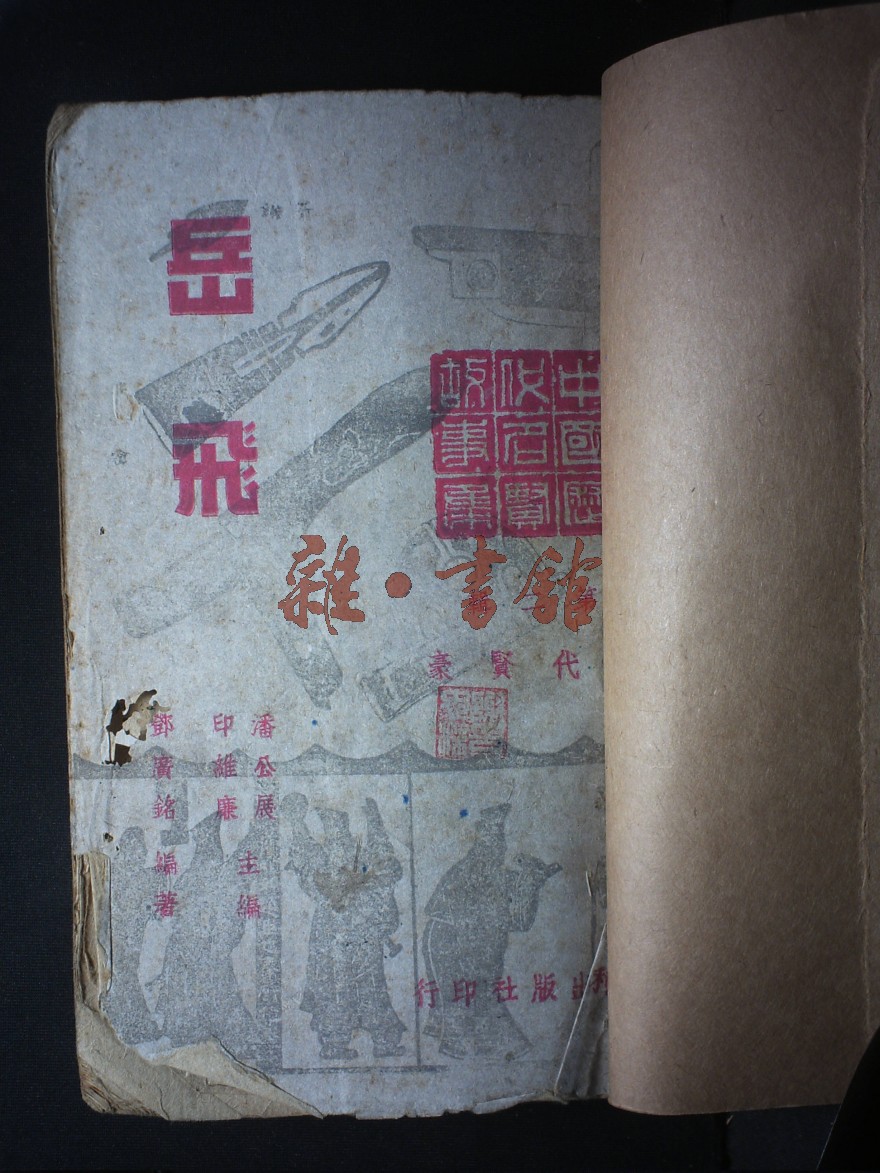 岳飛
中國歷
代名賢
故事集
雜·書館
代賢豪
潘公展
印維廉
主編
鄧廣銘編著
出版社印行